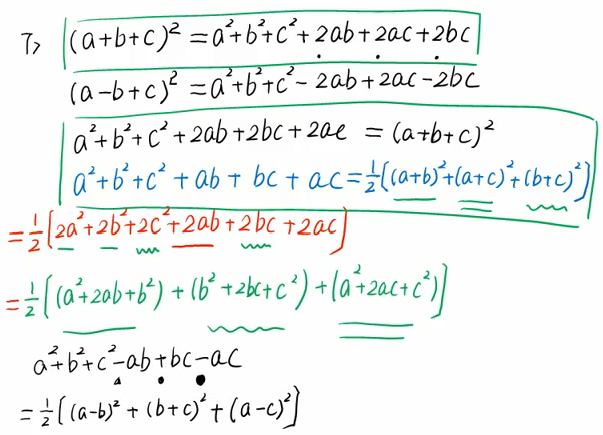 7> (a+b+c)² = a²+b²+c²+2ab+2ac+2bc
(a-b+c)² = a²+b²+c²-2ab+2ac-2bc
a²+b²+c²+2ab+2bc+2ac = (a+b+c)²
a²+b²+c²+ab+bc+ac=½[(a+b)²+(a+c)²+(b+c)²]
=½[2a²+2b²+2c²+2ab+2bc+2ac]
=½[(a²+2ab+b²)+(b²+2bc+c²)+(a²+2ac+c²)]
a²+b²+c²-ab+bc-ac
=½[(a-b)²+(b+c)²+(a-c)²]